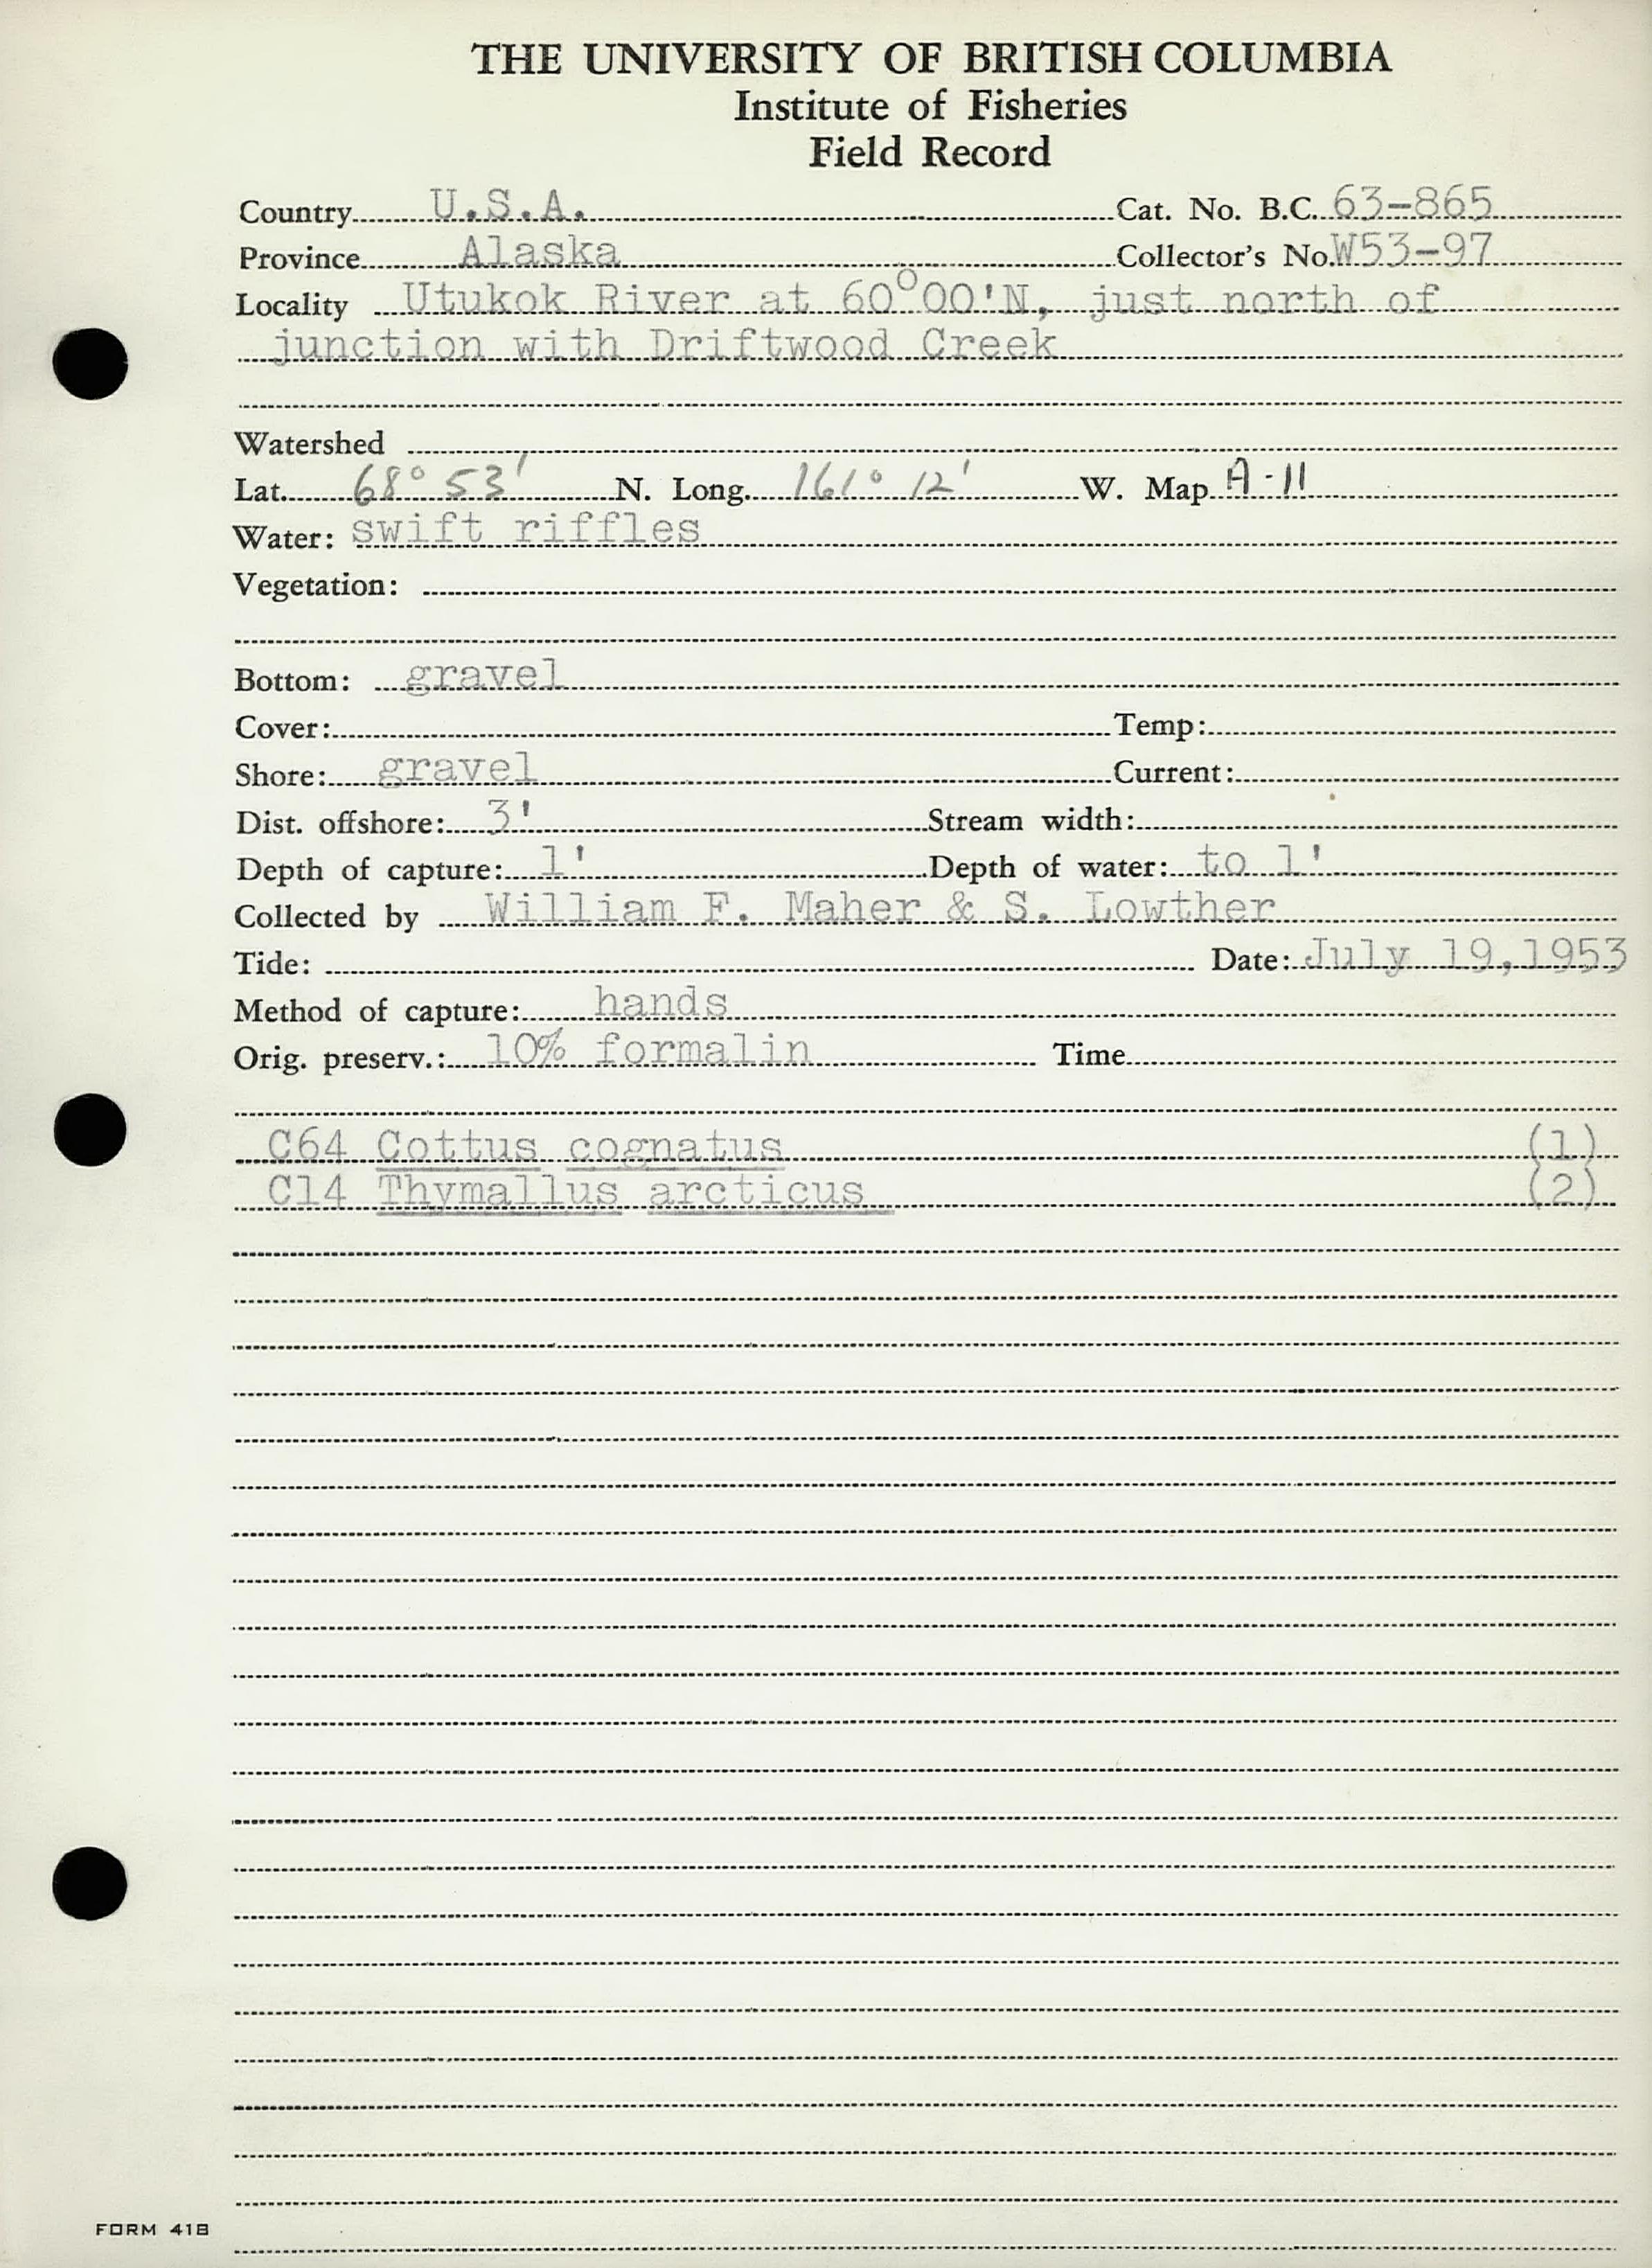 THE UNIVERSITY OF BRITISH COLUMBIA
Institute of Fisheries
Field Record
Country U.S.A. Cat. No. B.C. 63-865
Province Alaska Collector's No. W53-97
Locality Utukok River at 60°00'N, just north of
junction with Driftwood Creek
Watershed
Lat. 68° 53' N. Long. 161° 12' W. Map A-11
Water: swift riffles
Vegetation:
Bottom: gravel
Cover: Temp:
Shore: gravel Current:
Dist. offshore: 3' Stream width:
Depth of capture: 1' Depth of water: to 1'
Collected by William F. Maher & S. Lowther
Tide: Date: July 19,1953
Method of capture: hands
Orig. preserv.: 10% formalin Time
C64 Cottus cognatus (1)
C14 Thymallus arcticus (2)
FORM 41B